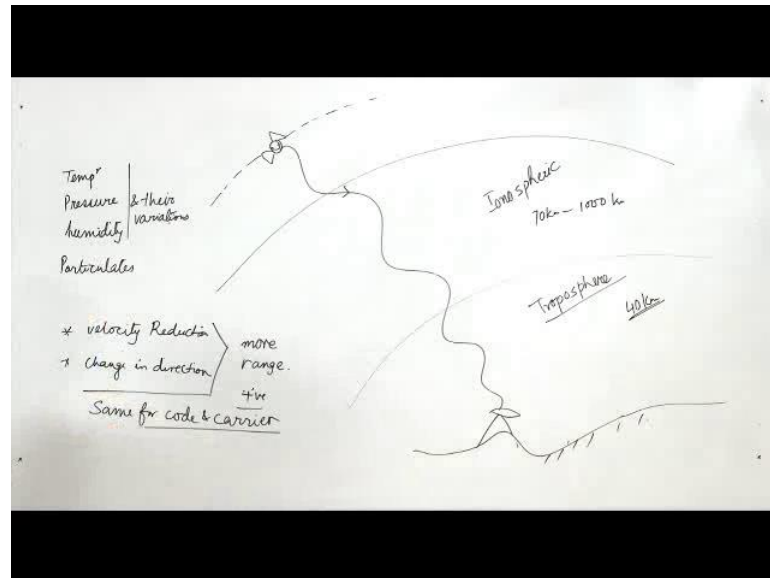 Tempr
Pressure & their
humidity variations
Particulates
* velocity Reduction
* change in direction
more
range.
+ve
Same for code & carrier
Ionospheric
70km - 1000 km
Troposphere
40km